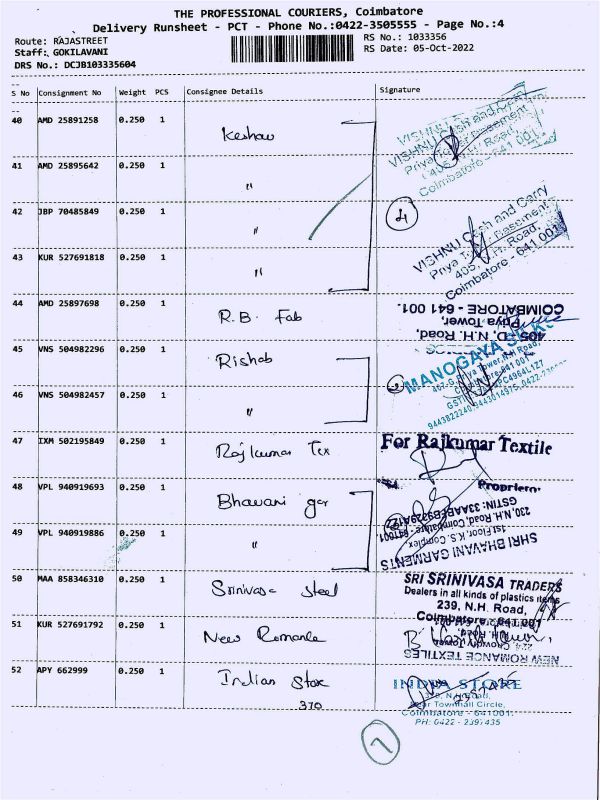 THE PROFESSIONAL COURIERS, Coimbatore
Delivery Runsheet - PCT - Phone No.:0422-3505555 - Page No.:4
Route: RAJASTREET
Staff: GOKILAVANI
DRS No.: DCJB103335604
RS No.: 1033356
RS Date: 05-Oct-2022
S No Consignment No Weight PCS Consignee Details Signature
40 AMD 25891258 0.250 1 Keshav
41 AMD 25895642 0.250 1 "
42 JBP 70485849 0.250 1 "
43 KUR 527691818 0.250 1 "
44 AMD 25897698 0.250 1 R.B. Fab
45 VNS 504982296 0.250 1 Rishab
46 VNS 504982457 0.250 1 "
47 IXM 502195849 0.250 1 Rajkumar Tex
48 VPL 940919693 0.250 1 Bhavani gar
49 VPL 940919886 0.250 1 "
50 MAA 858346310 0.250 1 Srinivasa Steel
51 KUR 527691792 0.250 1 New Romance
52 APY 662999 0.250 1 Indian Store
370
VISHNU Cash and Carry
Coimbatore - 641 001
4
VISHNU Cash and Carry
405, N.H. Road,
Coimbatore - 641 001
405-D, N.H. Road,
Priya Tower,
COIMBATORE - 641 001.
2
MANOGAYA
For Rajkumar Textile
Proprietor
SHRI BHAVANI GARMENTS
1st Floor, K.S. Complex
230, N.H. Road, Coimbatore - 641001.
SRI SRINIVASA TRADERS
Dealers in all kinds of plastics items
239, N.H. Road,
Coimbatore - 641 001
NEW ROMANCE TEXTILES
INDIA STORE
370, N.H. Road,
Near Townhall Circle,
Coimbatore - 641001.
PH: 0422 - 2397435
7